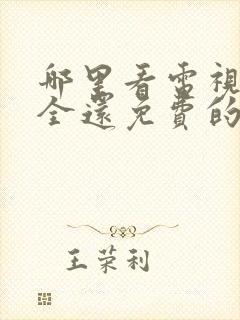 哪里看電視
全還免費的
王荣利